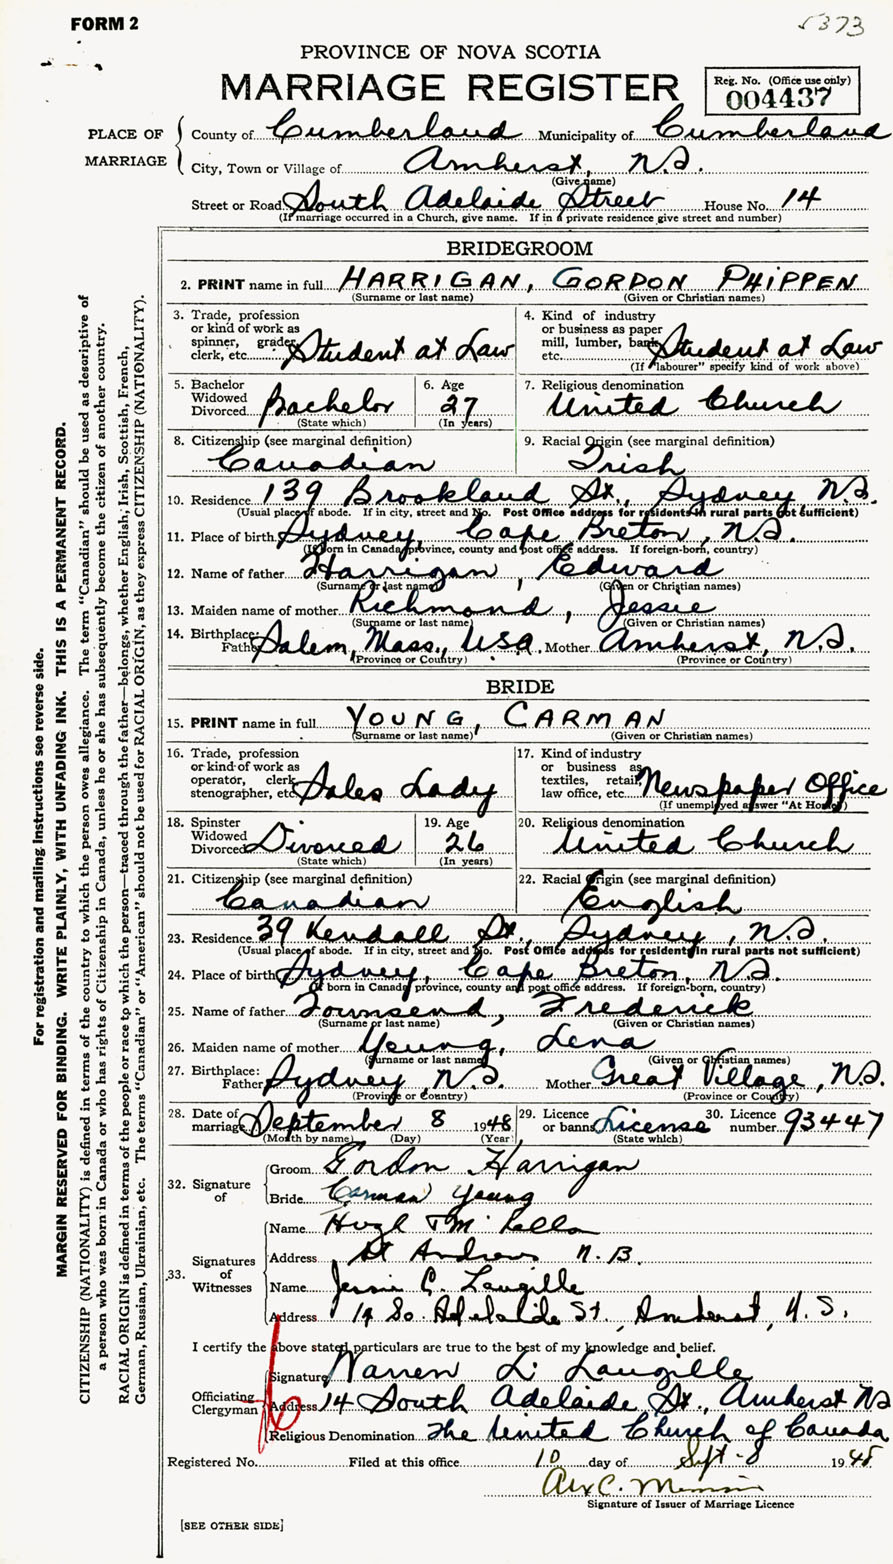 FORM 2
5373
PROVINCE OF NOVA SCOTIA
MARRIAGE REGISTER
Reg. No. (Office use only)
004437
PLACE OF MARRIAGE
County of Cumberland Municipality of Cumberland
City, Town or Village of Amherst, N.S.
(Give name)
Street or Road South Adelaide Street House No. 14
(If marriage occurred in a Church, give name. If in a private residence give street and number)
BRIDEGROOM
2. PRINT name in full HARRIGAN, GORDON PHIPPEN
(Surname or last name) (Given or Christian names)
3. Trade, profession or kind of work as spinner, grader, clerk, etc. Student at Law
4. Kind of industry or business as paper mill, lumber, bank, etc. Student at Law
(If "labourer" specify kind of work above)
5. Bachelor Widowed Divorced Bachelor
(State which)
6. Age 27
(In years)
7. Religious denomination United Church
8. Citizenship (see marginal definition) Canadian
9. Racial Origin (see marginal definition) Irish
10. Residence 139 Brookland St., Sydney, N.S.
(Usual place of abode. If in city, street and No. Post Office address for residents in rural parts not sufficient)
11. Place of birth Sydney, Cape Breton, N.S.
(If born in Canada, province, county and post office address. If foreign-born, country)
12. Name of father Harrigan, Edward
(Surname or last name) (Given or Christian names)
13. Maiden name of mother Richmond, Jessie
(Surname or last name) (Given or Christian names)
14. Birthplace: Father Salem, Mass., USA. Mother Amherst, N.S.
(Province or Country) (Province or Country)
BRIDE
15. PRINT name in full YOUNG, CARMAN
(Surname or last name) (Given or Christian names)
16. Trade, profession or kind of work as operator, clerk, stenographer, etc. Sales Lady
17. Kind of industry or business as textiles, retail, law office, etc. Newspaper Office
(If unemployed answer "At Home")
18. Spinster Widowed Divorced Divorced
(State which)
19. Age 26
(In years)
20. Religious denomination United Church
21. Citizenship (see marginal definition) Canadian
22. Racial Origin (see marginal definition) English
23. Residence 39 Kendall St., Sydney, N.S.
(Usual place of abode. If in city, street and No. Post Office address for residents in rural parts not sufficient)
24. Place of birth Sydney, Cape Breton, N.S.
(If born in Canada, province, county and post office address. If foreign-born, country)
25. Name of father Townsend, Frederick
(Surname or last name) (Given or Christian names)
26. Maiden name of mother Young, Lena
(Surname or last name) (Given or Christian names)
27. Birthplace: Father Sydney, N.S. Mother Great Village, N.S.
(Province or Country) (Province or Country)
28. Date of marriage September 8 1948
(Month by name) (Day) (Year)
29. Licence or banns License
(State which)
30. Licence number 93447
32. Signature of
Groom Gordon Harrigan
Bride Carman Young
33. Signatures of Witnesses
Name Hugh
Address St Andrews N.B.
Name Jessie C. Langille
Address 14 So. Adelaide St., Amherst, N.S.
I certify the above stated particulars are true to the best of my knowledge and belief.
Officiating Clergyman
Signature Warren L. Langille
Address 14 South Adelaide St., Amherst NS
Religious Denomination The United Church of Canada
Registered No. Filed at this office 10 day of Sept-8 1948
Signature of Issuer of Marriage Licence
[SEE OTHER SIDE]
For registration and mailing instructions see reverse side.
MARGIN RESERVED FOR BINDING. WRITE PLAINLY, WITH UNFADING INK. THIS IS A PERMANENT RECORD.
CITIZENSHIP (NATIONALITY) is defined in terms of the country to which the person owes allegiance. The term "Canadian" should be used as descriptive of
a person who was born in Canada or who has rights of Citizenship in Canada, unless he or she has subsequently become the citizen of another country.
RACIAL ORIGIN is defined in terms of the people or race to which the person—traced through the father—belongs, whether English, Irish, Scottish, French,
German, Russian, Ukrainian, etc. The terms "Canadian" or "American" should not be used for RACIAL ORIGIN, as they express CITIZENSHIP (NATIONALITY).